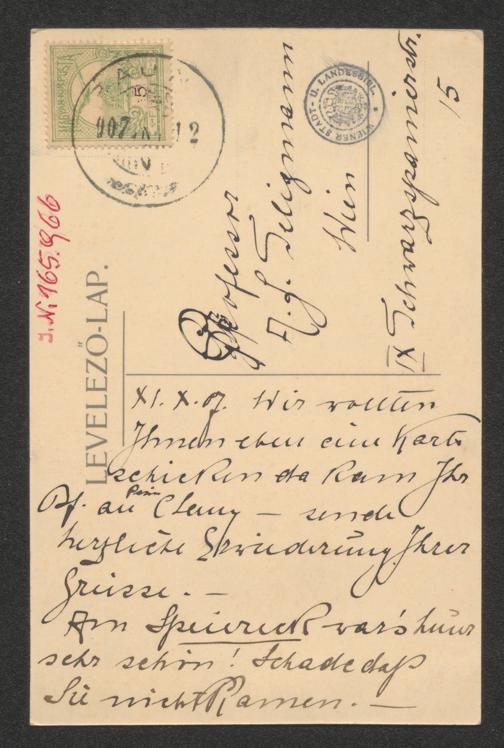 MAGYAR KIR. POSTA
907
12
WIENER STADT- U. LANDESBIBL.
J.N. 165.966
LEVELEZŐ-LAP.
Professor
A. F. Seligmann
Wien
IX Schwarzspanierstr.
15
XI. X. 07. Wir wollten
Ihnen eben eine Karte
schicken da kam Ihr
an Clemy – sende
herzliche Erwiederung Ihrer
Grüsse. –
Am Speiereck war's heuer
sehr schön! Schade daß
Sie nicht kamen. –